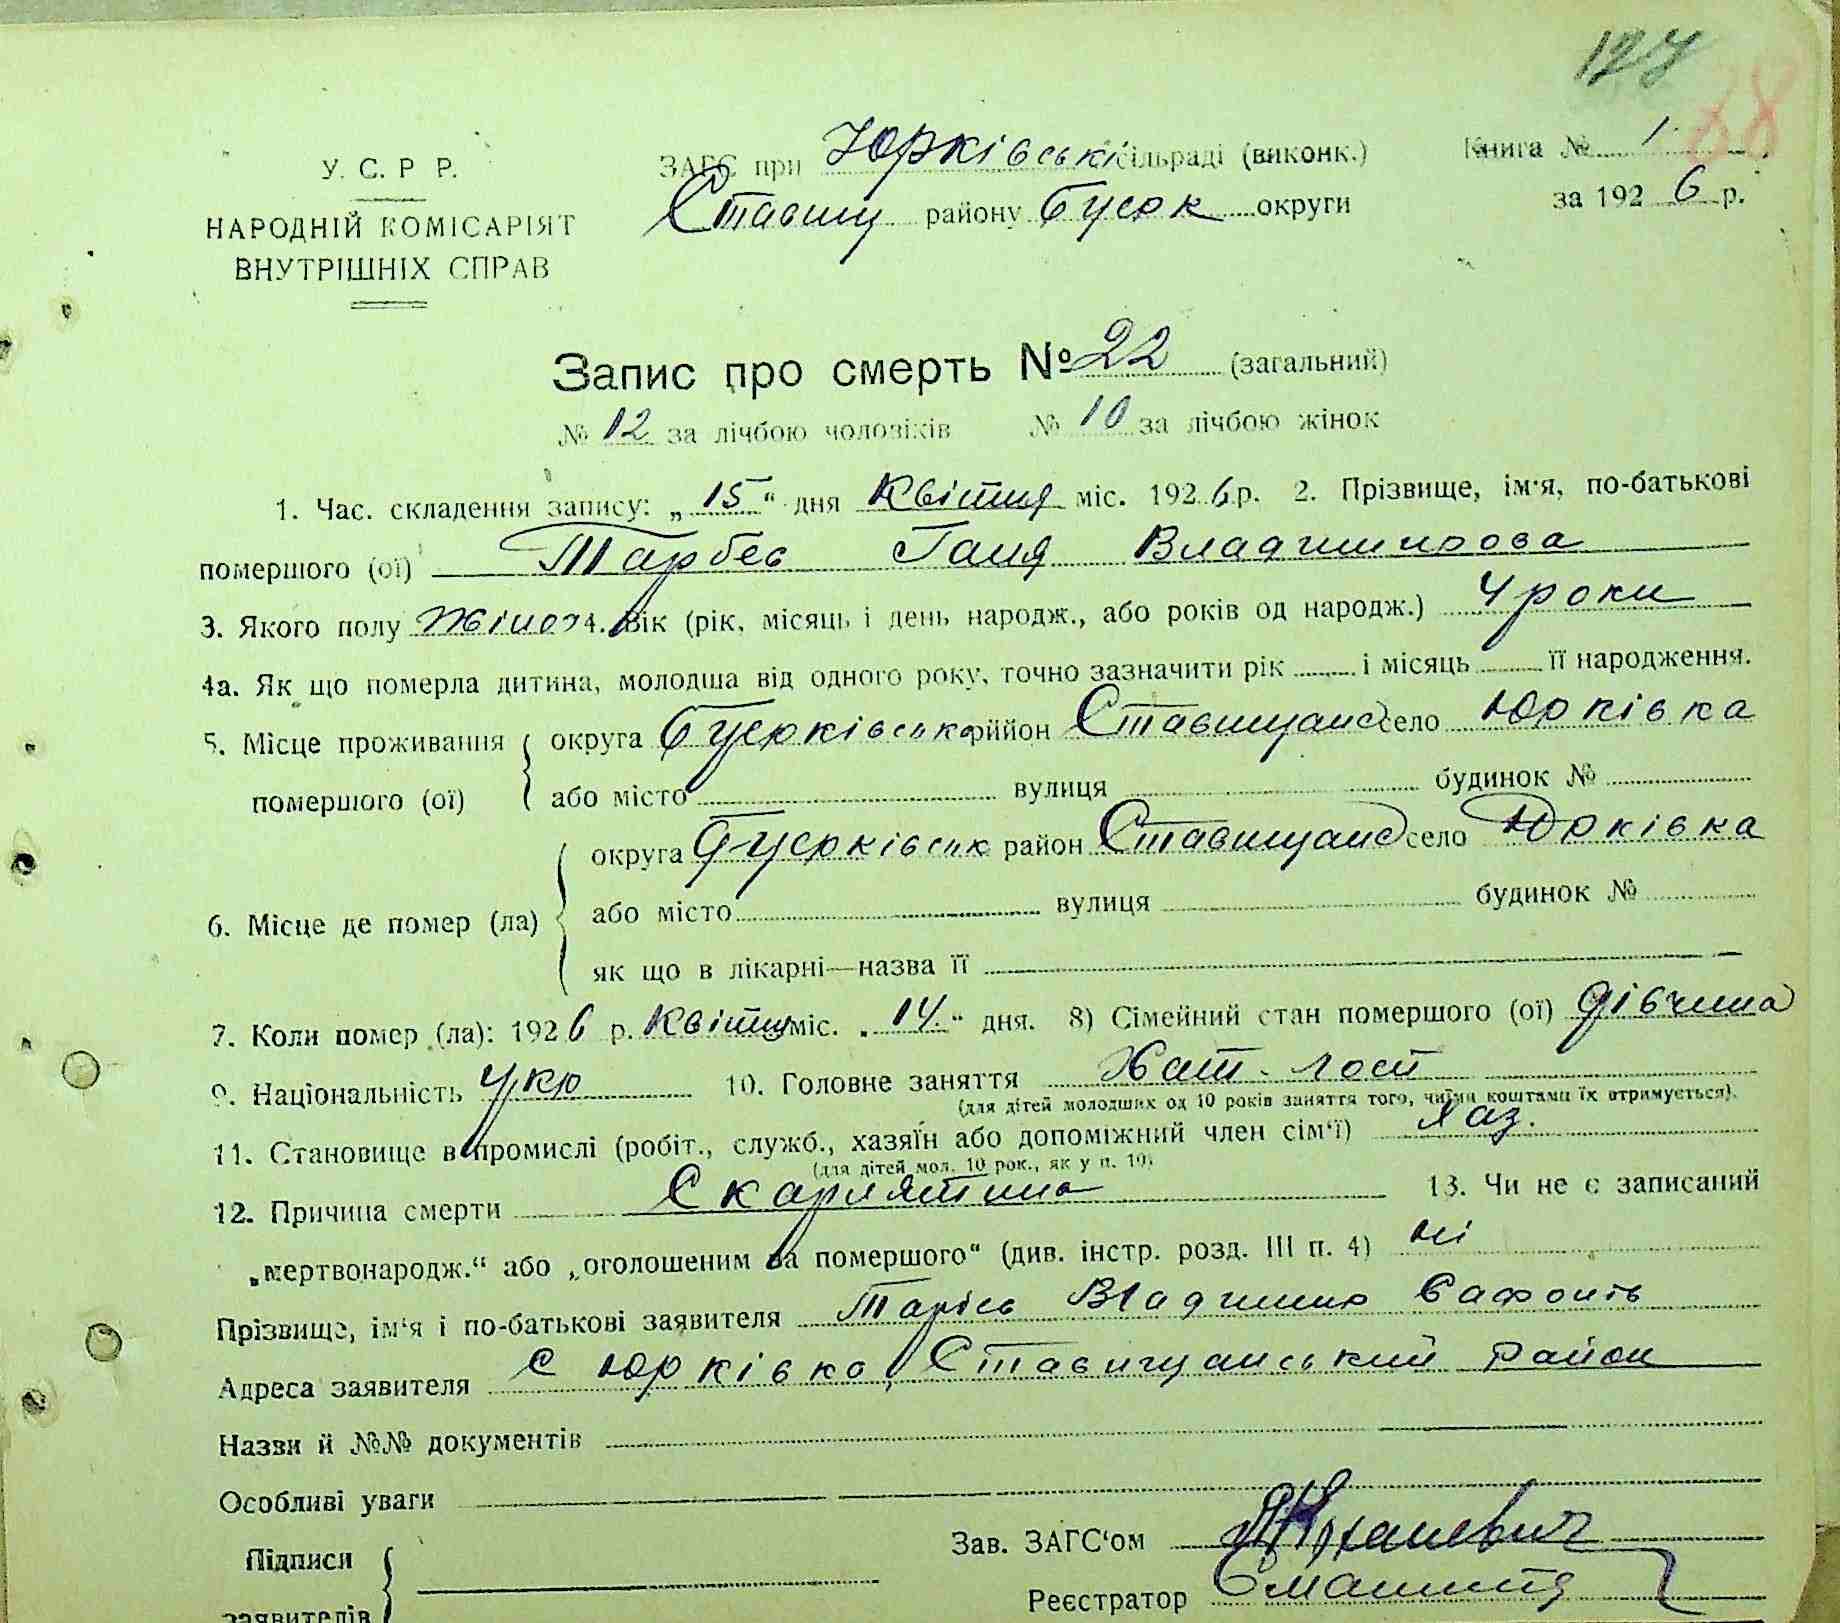 127
88
У. С. Р Р.
НАРОДНІЙ КОМІСАРІЯТ
ВНУТРІШНІХ СПРАВ
ЗАГС при Юрківські сільраді (виконк.)
Ставищ району округи
Книга № 1
за 1926 р.
Запис про смерть № 22 (загальний)
№ 12 за лічбою чоловіків № 10 за лічбою жінок
1. Час. складення запису: „15“ дня Квітня міс. 1926 р. 2. Прізвище, ім'я, по-батькові
помершого (ої) Ганя Владимирова
3. Якого полу Жіноч 4. Вік (рік, місяць і день народж., або років од народж.) 4 роки
4а. Як що померла дитина, молодша від одного року, точно зазначити рік і місяць її народження.
5. Місце проживання помершого (ої) округа район Ставищанс село Юрківка
або місто вулиця будинок №
6. Місце де помер (ла) округа район Ставищанс село Юрківка
або місто вулиця будинок №
як що в лікарні—назва її
7. Коли помер (ла): 1926 р. Квітня міс. „14.“ дня. 8) Сімейний стан помершого (ої) дівчина
9. Національність Укр 10. Головне заняття
(для дітей молодших од 10 років заняття того, чиїми коштами їх отримується).
11. Становище в промислі (робіт., служб., хазяїн або допоміжний член сім'ї) Хаз.
(для дітей мол. 10 рок., як у п. 10)
12. Причина смерти Скарлятина 13. Чи не є записаний
„мертвонародж.“ або „оголошеним за помершого“ (див. інстр. розд. III п. 4) ні
Прізвище, ім'я і по-батькові заявителя Владимир
Адреса заявителя с Юрківка, Ставищанський район
Назви й №№ документів
Особливі уваги
Підписи
заявителів
Зав. ЗАГС'ом
Реєстратор